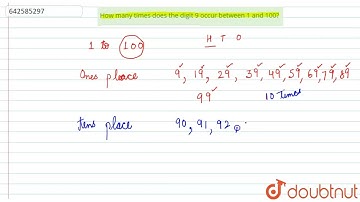 642585297
How many times does the digit 9 occur between 1 and 100?
1 to 100
H T O
Ones place 9, 19, 29, 39, 49, 59, 69, 79, 89
99
10 Times
tens place 90, 91, 92
doubtnut